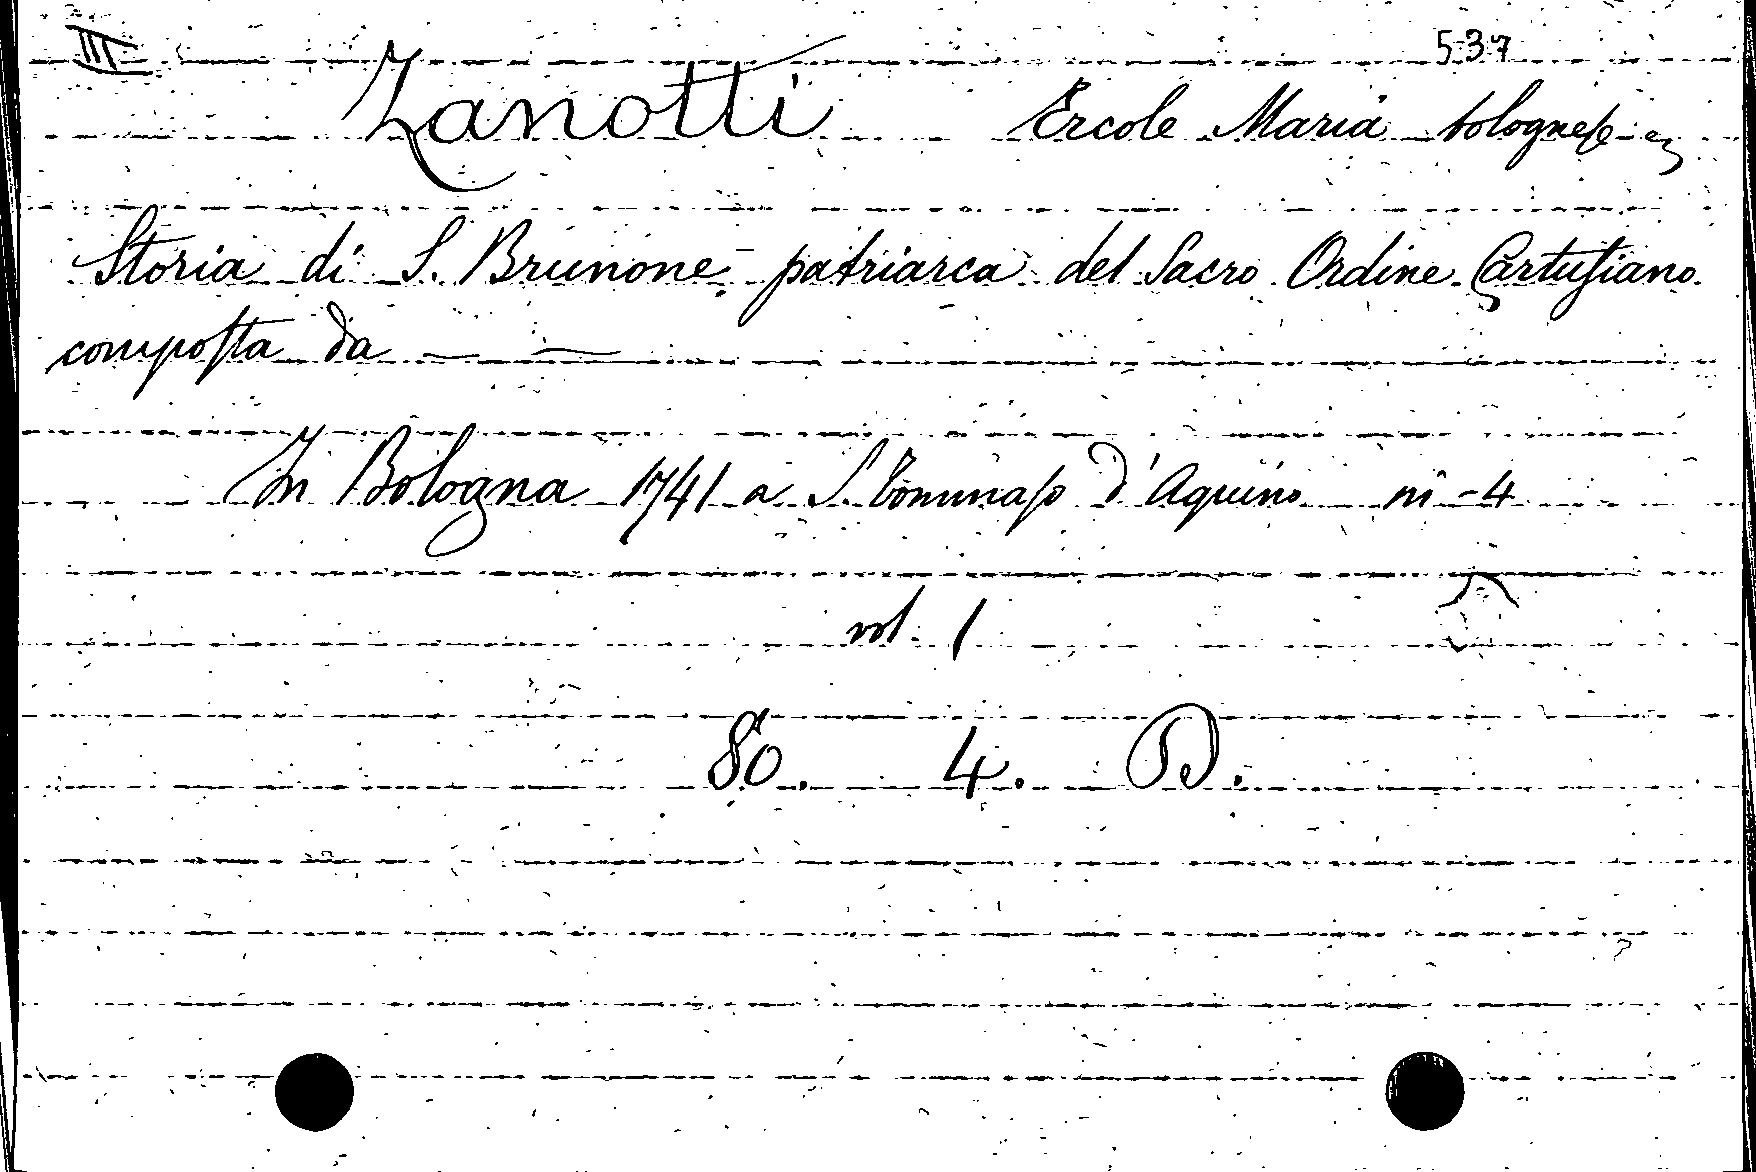 III 537
Zanotti Ercole Maria bolognese
Storia di S. Brunone patriarca del Sacro Ordine Cartusiano
composta da — —
In Bologna 1741 a S. Tommaso d'Aquino in-4
vol. 1
80. 4. D.